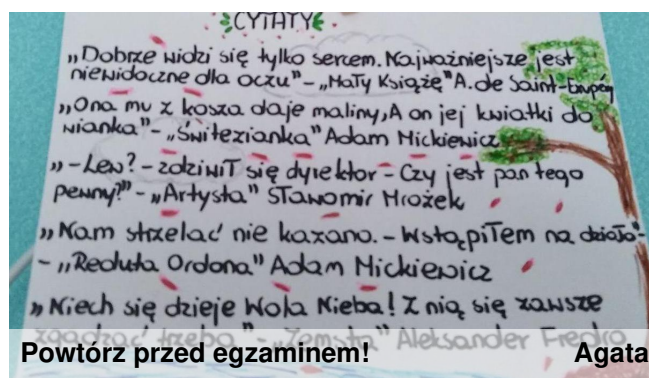 CYTATY
„Dobrze widzi się tylko sercem. Najważniejsze jest
niewidoczne dla oczu" – „Mały Książę" A. de Saint-Exupéry
„Ona mu z kosza daje maliny, A on jej kwiatki do
wianka" – „Świtezianka" Adam Mickiewicz
„ – Lew? – zdziwił się dyrektor – Czy jest pan tego
pewny?" – „Artysta" Sławomir Mrożek
„Nam strzelać nie kazano. – Wstąpiłem na działo"
– „Reduta Ordona" Adam Mickiewicz
„Niech się dzieje Wola Nieba! Z nią się zawsze
zgadzać trzeba" – „Zemsta" Aleksander Fredro
Powtórz przed egzaminem! Agata